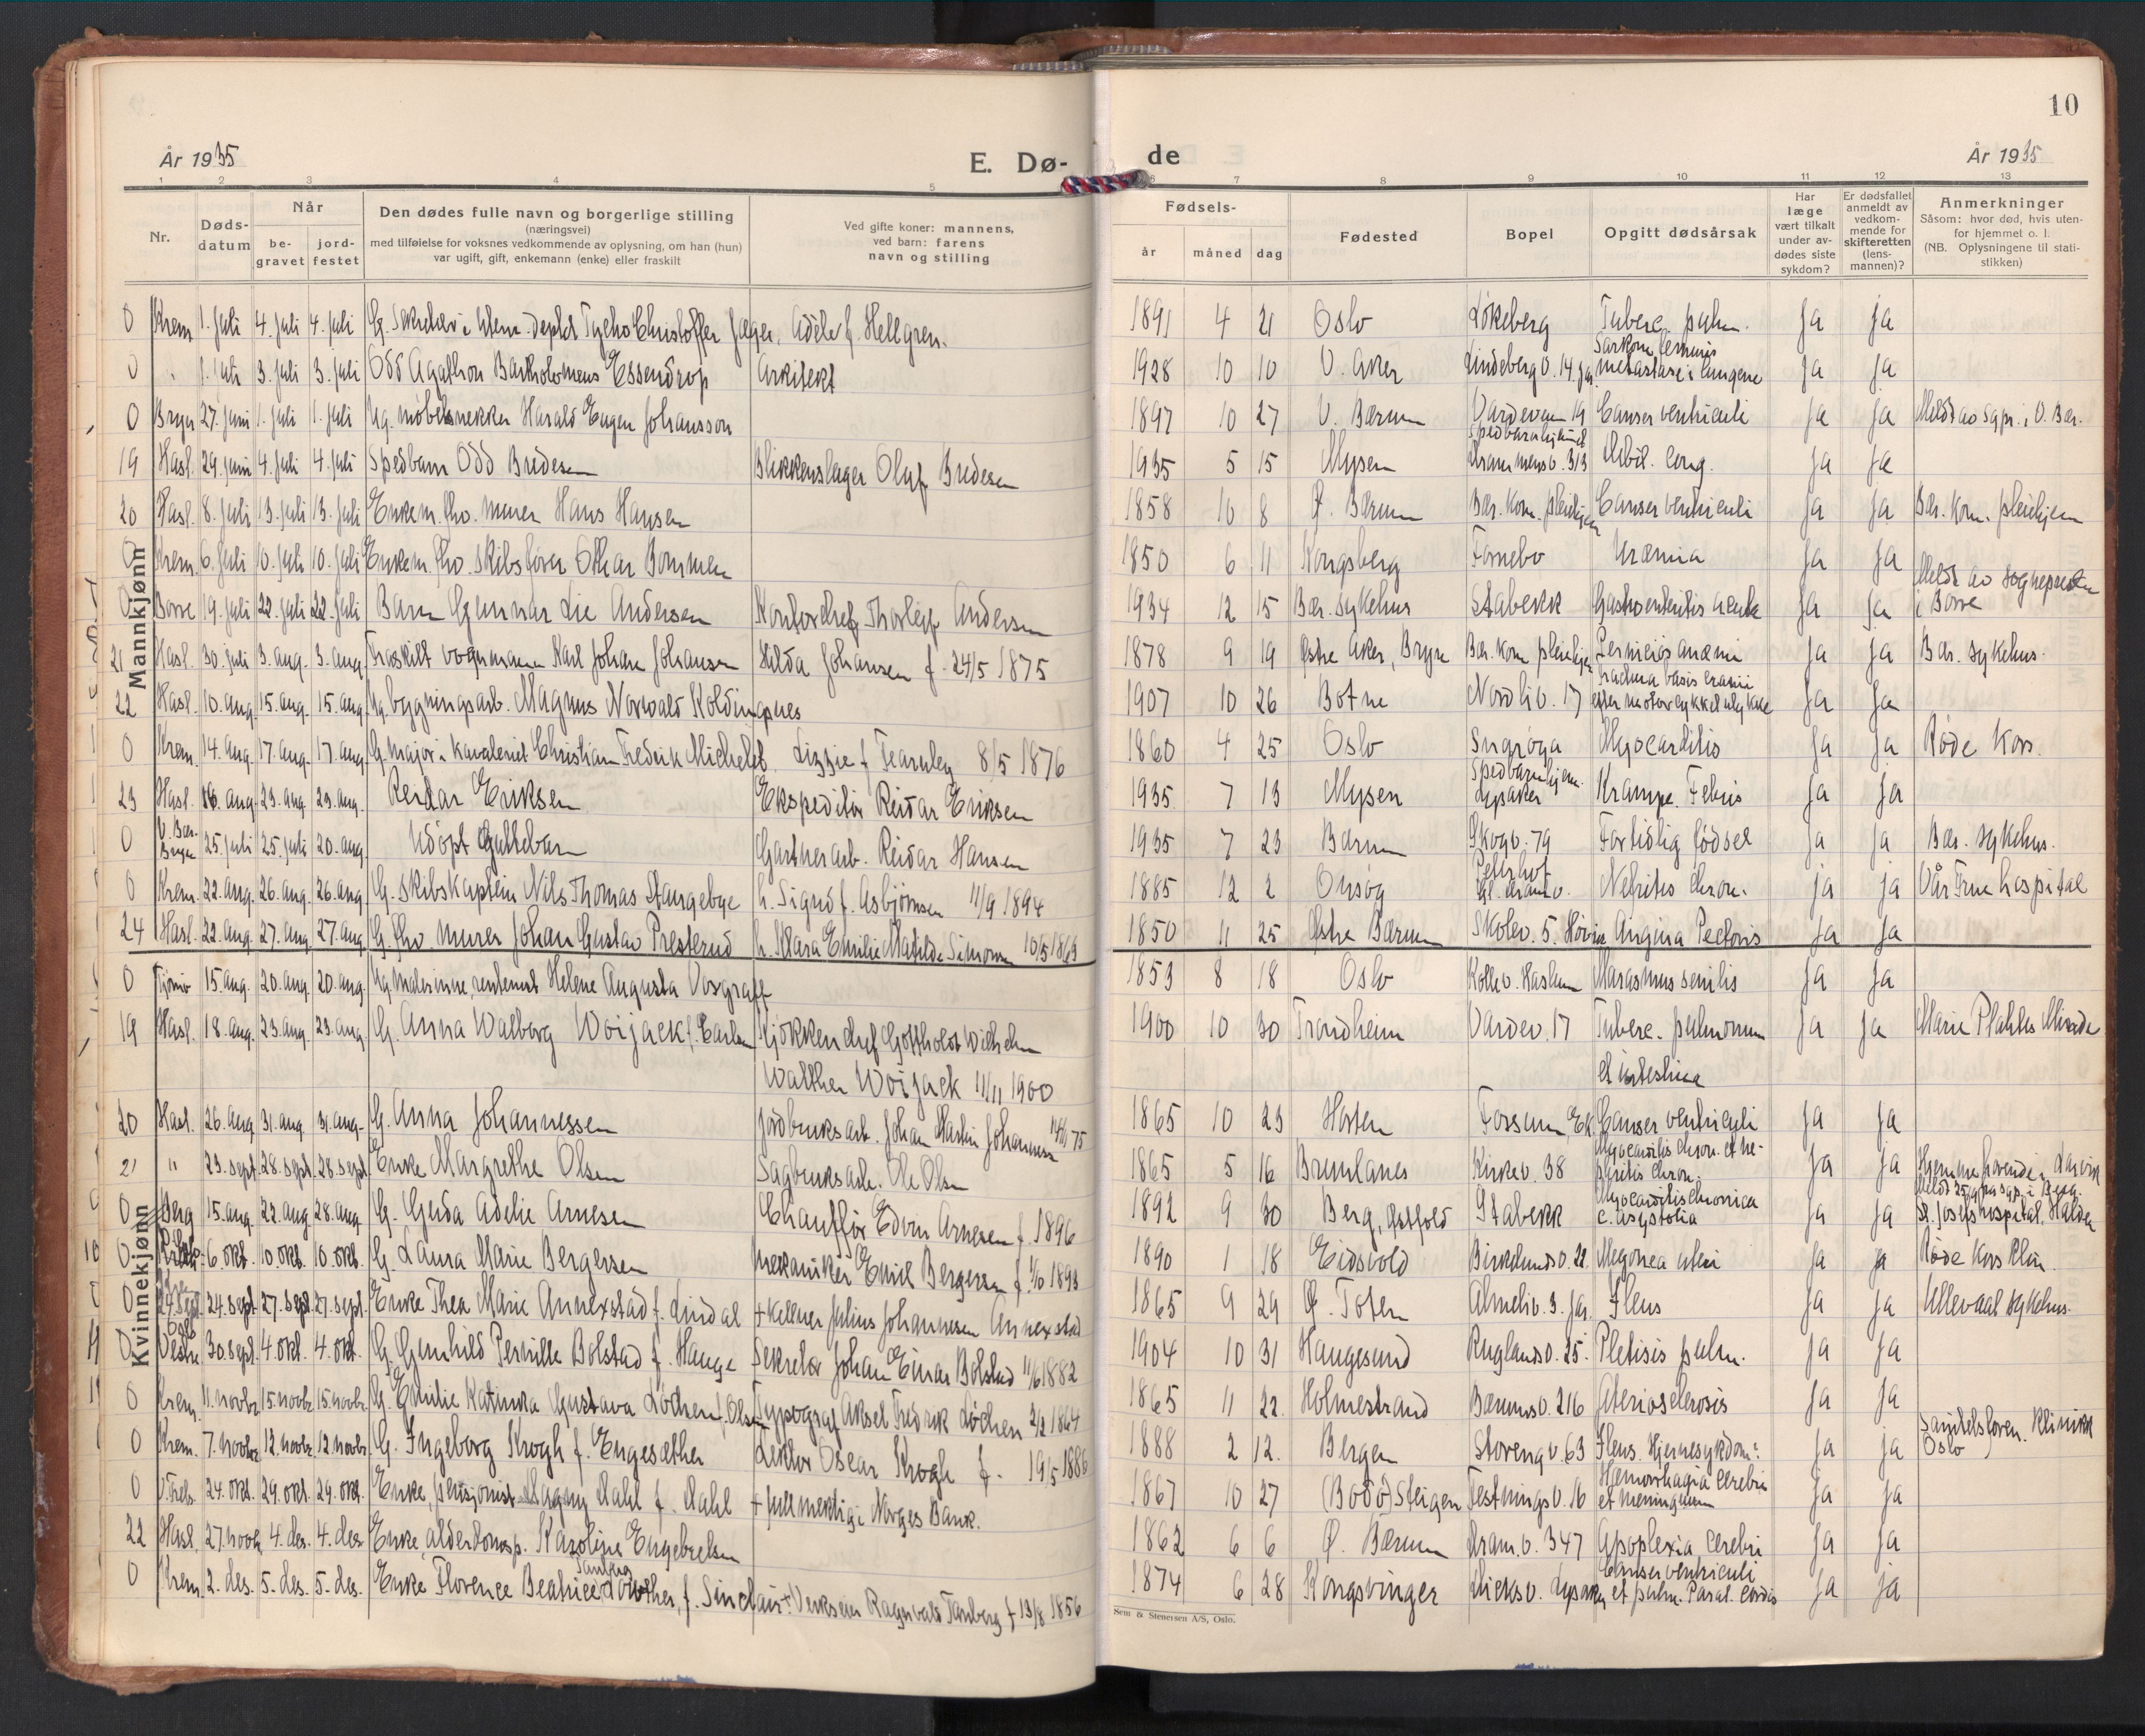 10
År 1935 E. Dø- de År 1935
1 2 3 4 5 6 7 8 9 10 11 12 13
Nr. Døds-datum Når be-gravet jord-festet Den dødes fulle navn og borgerlige stilling (næringsvei) med tilføielse for voksnes vedkommende av oplysning, om han (hun) var ugift, gift, enkemann (enke) eller fraskilt Ved gifte koner: mannens, ved barn: farens navn og stilling Fødsels- år måned dag Fødested Bopel Opgitt dødsårsak Har læge vært tilkalt under av-dødes siste sykdom? Er dødsfallet anmeldt av vedkom-mende for skifteretten (lens-mannen)? Anmerkninger Såsom: hvor død, hvis uten-for hjemmet o. l. (NB. Oplysningene til stati-stikken)
Mannkjønn
0 Krem. 1. juli 4. juli 4. juli G. Sekretær i Tycho Christoffer Jæger, Adèle f. Hellgren. 1891 4 21 Oslo Løkeberg Tuberc. pulm. ja ja
0 " 1. juli 3. juli 3. juli Odd Agathon Bartholomeus Essendrop Arkitekt 1928 10 10 V. Aker Lindeberg v. 14 Sarkom metastase i lungene ja ja
0 Bryn 27. juni 1. juli 1. juli Ug. møbelsnekker Harald Eugen Johansson 1897 10 27 V. Bærum Vardeveien 19 Canser ventriculi ja ja Meldt av sgpr. i V. Bær.
19 Hasl. 29. juni 4. juli 4. juli Spedbarn Odd Bredesen Blikkenslager Oluf Bredesen 1935 5 15 Mysen Spedbarnhjemmet Drammensv. 313 Mbil. cong. ja ja
20 Hasl. 8. juli 13. juli 13. juli Enkem. fhv. murer Hans Hansen 1858 10 8 Ø. Bærum Bær. kom. pleiehjem Canser ventriculi ja ja Bær. kom. pleiehjem
0 Krem. 6. juli 10. juli 10. juli Enkem. fhv. skibsfører Othar Bommen 1850 6 11 Kongsberg Fornebo Uræmia ja ja
0 Borre 19. juli 22. juli 22. juli Barn Gunnar Lie Andersen Kontorchef Thorleif Andersen 1934 12 15 Bær. sykehus Stabekk Gastroenteritis acuta ja ja Meldt av sognepresten i Borre
21 Hasl. 30. juli 3. aug. 3. aug. Fraskilt vognmann Karl Johan Johansen Hilda Johansen f. 24/5 1875 1878 9 19 Østre Aker, Bryn Bær. kom. pleiehjem Perniciøs anæmi ja ja Bær. sykehus.
22 Hasl. 10. aug. 15. aug. 15. aug. Ug. bygningsarb. Magnus Norvald Koldingsnes 1907 10 26 Botne Nordliv. 17 Fractura basis cranii efter motorcykkelulykke ja ja
0 Krem. 14. aug. 17. aug. 17. aug. G. major i kavaleriet Christian Fredrik Michelet Lizzie f. Fearnley 8/5 1876 1860 4 25 Oslo Snarøya Myocarditis ja ja Røde Kors.
23 Hasl. 16. aug. 23. aug. 23. aug. Reidar Eriksen Ekspeditør Reidar Eriksen 1935 7 13 Mysen Spedbarnhjem. Lysaker Krampe. Febris ja ja
0 V. Bær. Bryn 25. juli 25. juli 20. aug. Udøpt guttebarn Gartnerarb. Reidar Hansen 1935 7 23 Bærum Skogv. 79 Fortidlig fødsel ja ja Bær. sykehus.
0 Krem. 22. aug. 26. aug. 26. aug. G. skibskaptein Nils Thomas Stangebye h. Sigrid f. Asbjørnsen 11/9 1894 1885 12 2 Onsøy Peterhof Gl. Dramv. Nefritis chron. ja ja Vår Frue hospital
24 Hasl. 22. aug. 27. aug. 27. aug. G. fhv. murer Johan Gustav Presterud h. Klara Emilie Matilde Simonsen 10/5 1863 1850 11 25 Østre Bærum Skolev. 5. Høvik Angina Pectoris ja ja
Kvinnekjønn
0 Tjømø 15. aug. 20. aug. 20. aug. Ug. malerinne, rentenist Helene Augusta Vosgraff 1853 8 18 Oslo Kollev. Haslum Marasmus senilis ja ja
19 Hasl. 18. aug. 23. aug. 23. aug. G. Anna Walborg Woijack f. Carlsen Kjøkkenchef Gottholdt Wilhelm Walther Woijack 11/11 1900 1900 10 30 Trondheim Vardev. 17 Tuberc. pulmonum et intestina ja ja Marie Plahtes Minde
20 Hasl. 26. aug. 31. aug. 31. aug. G. Anna Johannessen Jordbruksarb. Johan Martin Johannessen 75 1865 10 23 Horten Fossum, Ek. Canser ventriculi ja ja
21 " 23. sept. 28. sept. 28. sept. Enke Margrethe Olsen Sagbruksarb. Ole Olsen 1865 5 16 Brunlanes Kirkev. 38 Myocarditis chron. et nephritis chron. ja ja Hjemmehørende i Larvik
0 Berg 15. aug. 22. aug. 28. aug. G. Gerda Adelie Arnesen Chauffør Edvin Arnesen f. 1896 1892 9 30 Berg, Østfold Stabekk Myocarditis chronica c. asystolia ja ja St. Josefs hospital, Halden
0 6. okt. 10. okt. 10. okt. G. Laura Marie Bergersen Mekaniker Emil Bergersen f. 1893 1890 1 18 Eidsvold Birkelundsv. 22 Myonea uteri ja ja Røde Kors Klin.
0 24. sept. 27. sept. 27. sept. Enke Thea Marie Annexstad f. Lindal + Kellner Julius Johannesen Annexstad 1865 9 29 Ø. Toten Almeliv. 3. Jar. Ileus ja ja Ullevaal sykehus.
0 Vestre 30. sept. 4. okt. 4. okt. G. Gunhild Pernille Bolstad f. Hauge Sekretær Johan Einar Bolstad 11/6 1882 1904 10 31 Haugesund Ruglandsv. 25. Pletisis pulm. ja ja
0 Krem. 11. novbr. 15. novbr. 15. novbr. G. Emilie Katinka Gustava Løchen f. Olsen Typograf Aksel Fredrik Løchen 1864 1865 11 22. Holmestrand Bærumsv. 216 Aterioselerosis ja ja
0 Krem. 7. novbr. 12. novbr. 12. novbr. G. Ingeborg Krogh f. Engesæther Lektor Oscar Krogh f. 19/5 1886 1888 2 12. Bergen Storengv. 63 Ileus. Hjernesykdom? ja ja Sanitetsforen. Klinikk Oslo
0 V. Frels. 24. okt. 29. okt. 29. okt. Enke, pensjonist Dagny Dahl f. Dahl + fullmektig i Norges Bank. 1867 10 27 (Bodø) Steigen Festningsv. 16 Hæmorrhagia cerebri et meningeum ja ja
22 Hasl. 27. novb. 4. des. 4. des. Enke, alderdomsp. Karoline Engebretsen 1862 6 6 Ø. Bærum Dram. v. 347 Apoplexia cerebri ja ja
0 Krem. 2. des. 5. des. 5. des. Enke Florence Beatrice Lowther Tanberg, f. Sinclair + Verkseier Ragnvald Tanberg f. 13/8 1856 1874 6 28 Kongsvinger Dicksv. Lysaker Canser ventriculi et pulm. Paral. cordis ja ja
Sem & Stenersen A/S, Oslo.